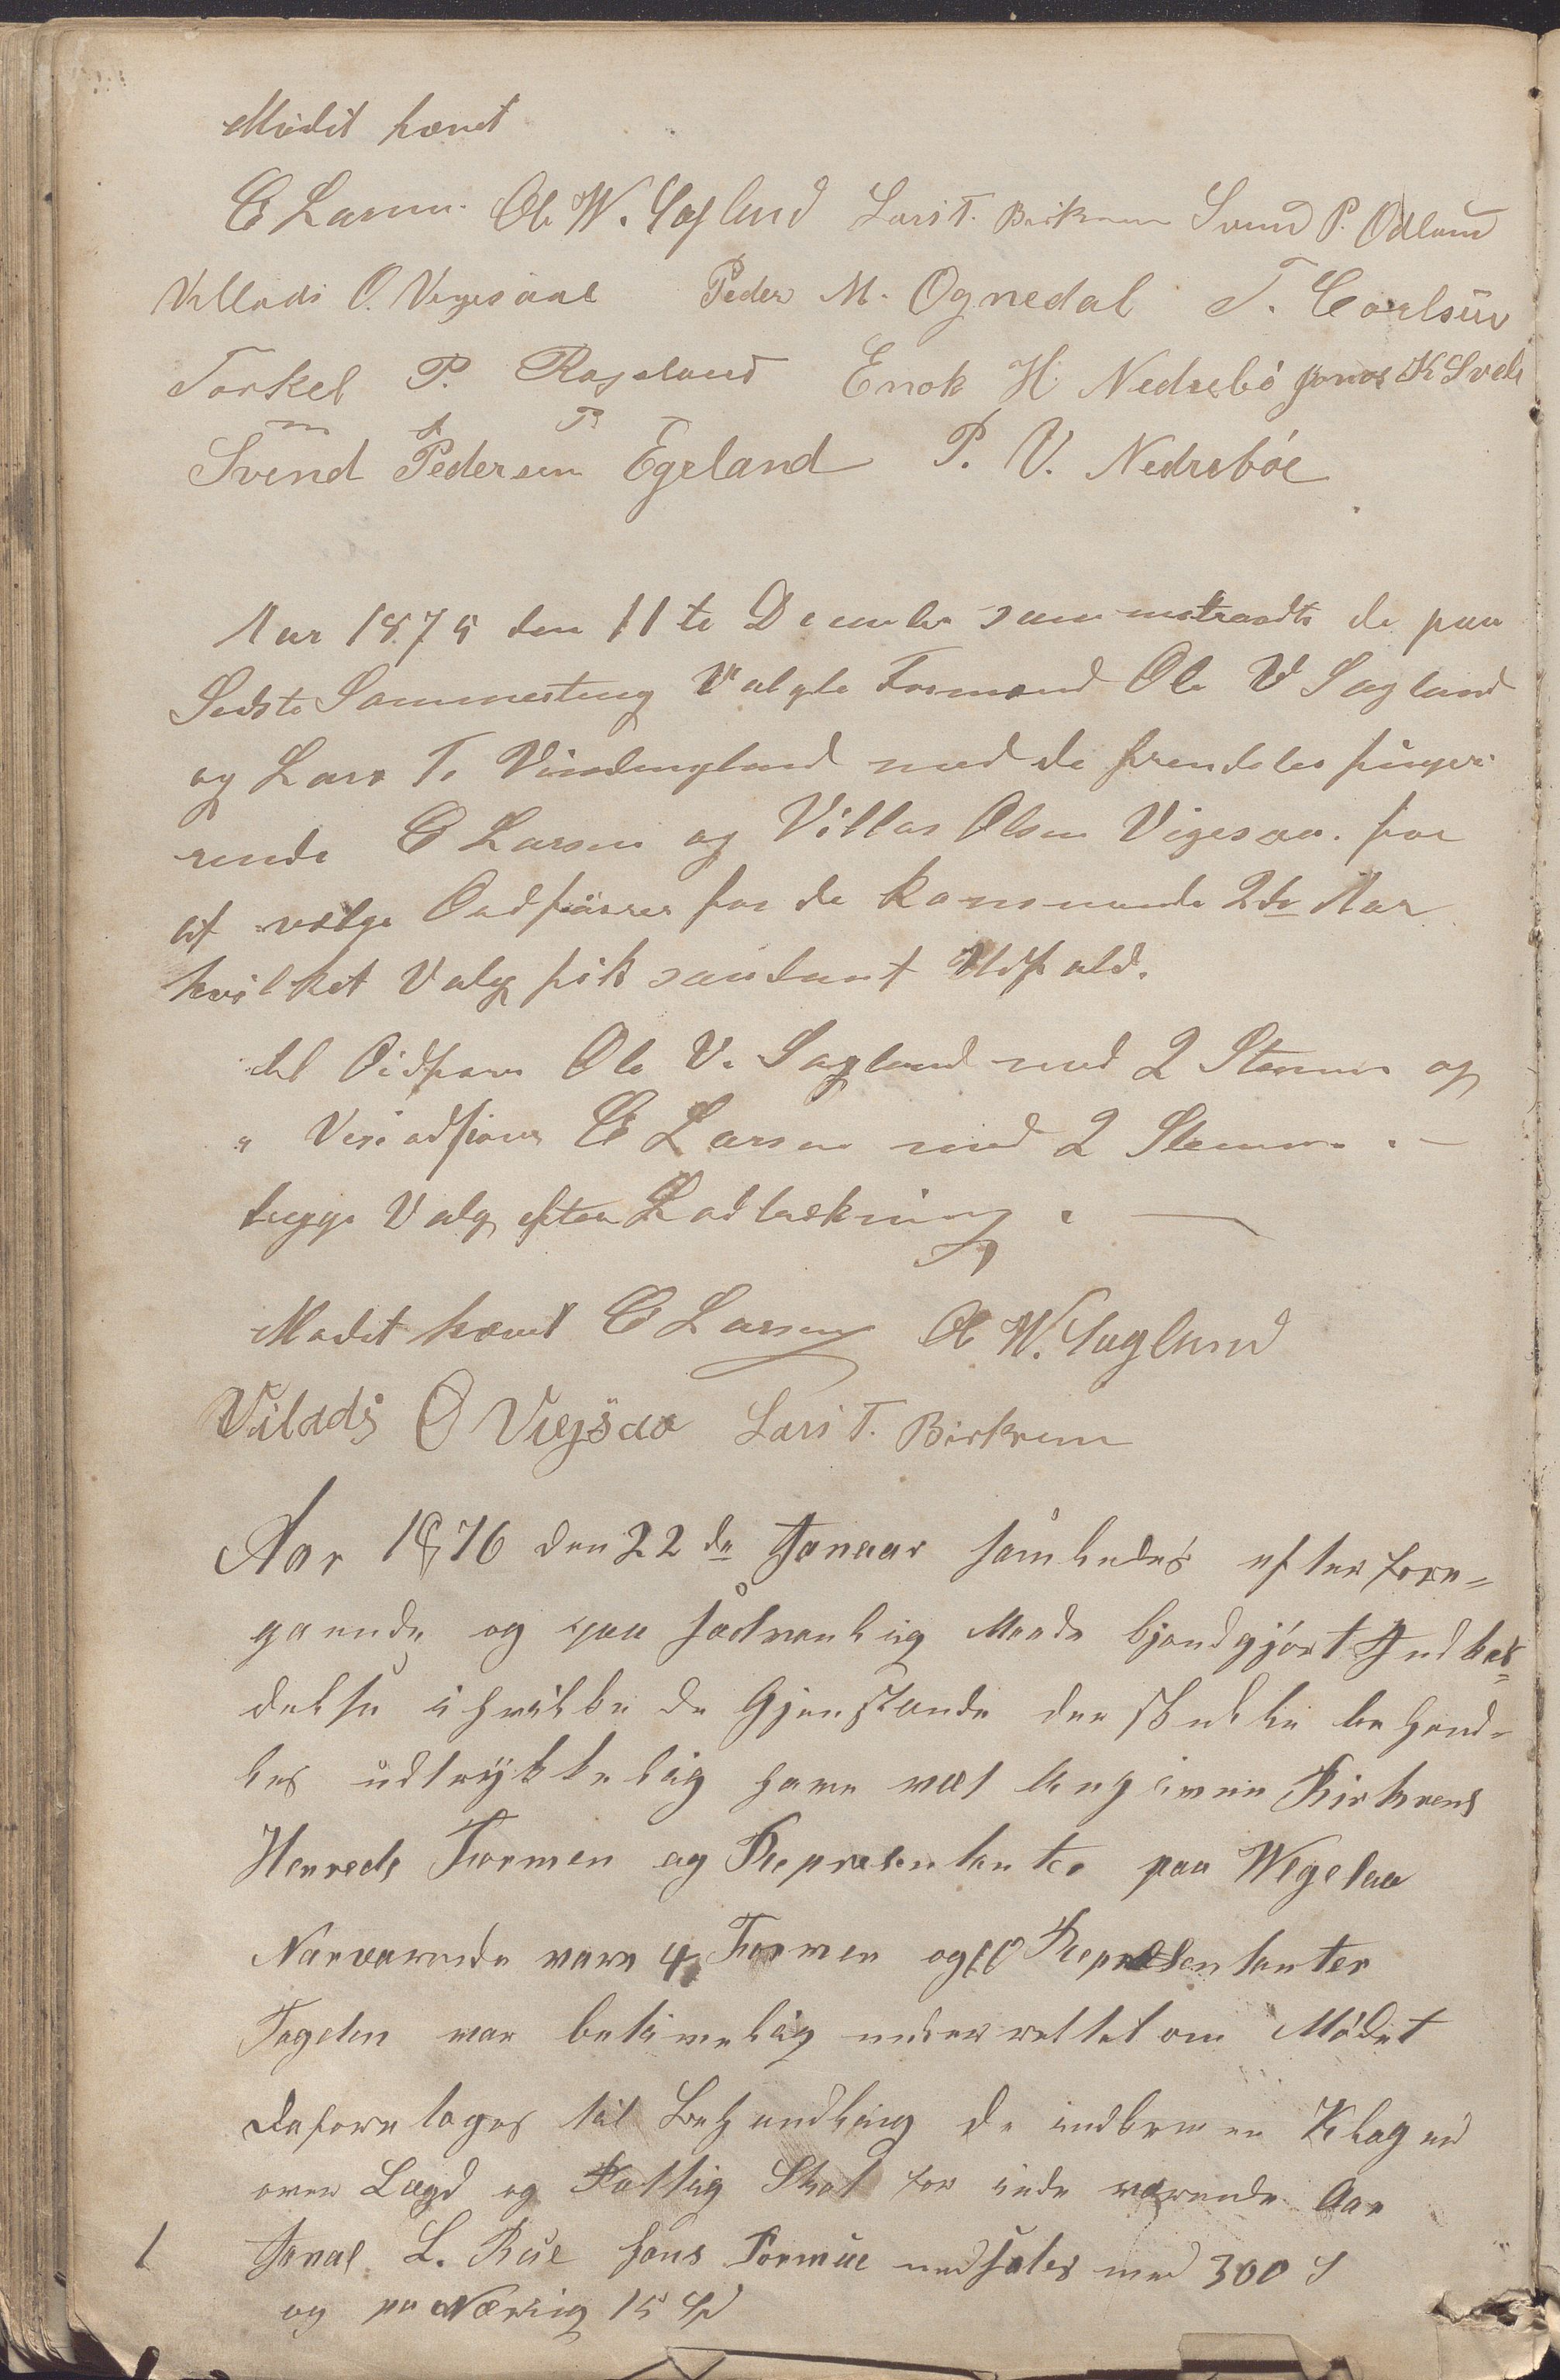 Mødit hævet
E Larsen. Ole W. Sagland Lars T. Birkrem Svend P. Ødland
Vellads O. Vegesaae Peder M. Ognedal T. Carlsen
Torkel P. Rageland Enok H Nedrebø Jonas K Svele
Svend Pedersen Egeland P. V. Nedrebøe
Aar 1875 den 11te December sammentraadte de paa
Sidste Sommerting Valgte Formænd Ole V Sagland
og Lars T. med de fremdeles fúnge-
rende E Larsen og Villas Olsen Vigesaa. for
at vælge Ordfører for de kommende 2de Aar
hvilket Valg fik saadant Udfald.
til Ordfører Ole V. Sagland med 2 Stemmer og
" Viseordfører E Larsen med 2 Stemmer. —
begge Valg efter Lodtrækning. —
Mødit hævet E Larsen Ole W. Sagland
Vilads O Vegsaa Lars T. Birkrem
Aar 1876 den 22de Janaar samledes efter fore-
gaaende og paa sædvanlig Maade bjendgjørt Indkal-
delse i hvilke de Gjenstande der skulle behand-
les udtrykkelig have vært angivne Birkrems
Herreds Formen og Representanter paa Wegesaa
Nærværende vare 4 Formen og 10 Represæntanter
Fogden var betimelig underrettet om Mødet
Deforetoges til Behandling de indkomne Klager
over Lægd og Fattig Skat for indeværende Aar
1 Jonas L. Rúe hans Formúe nedsætes med 300 S
og pa Næring 15 Spd